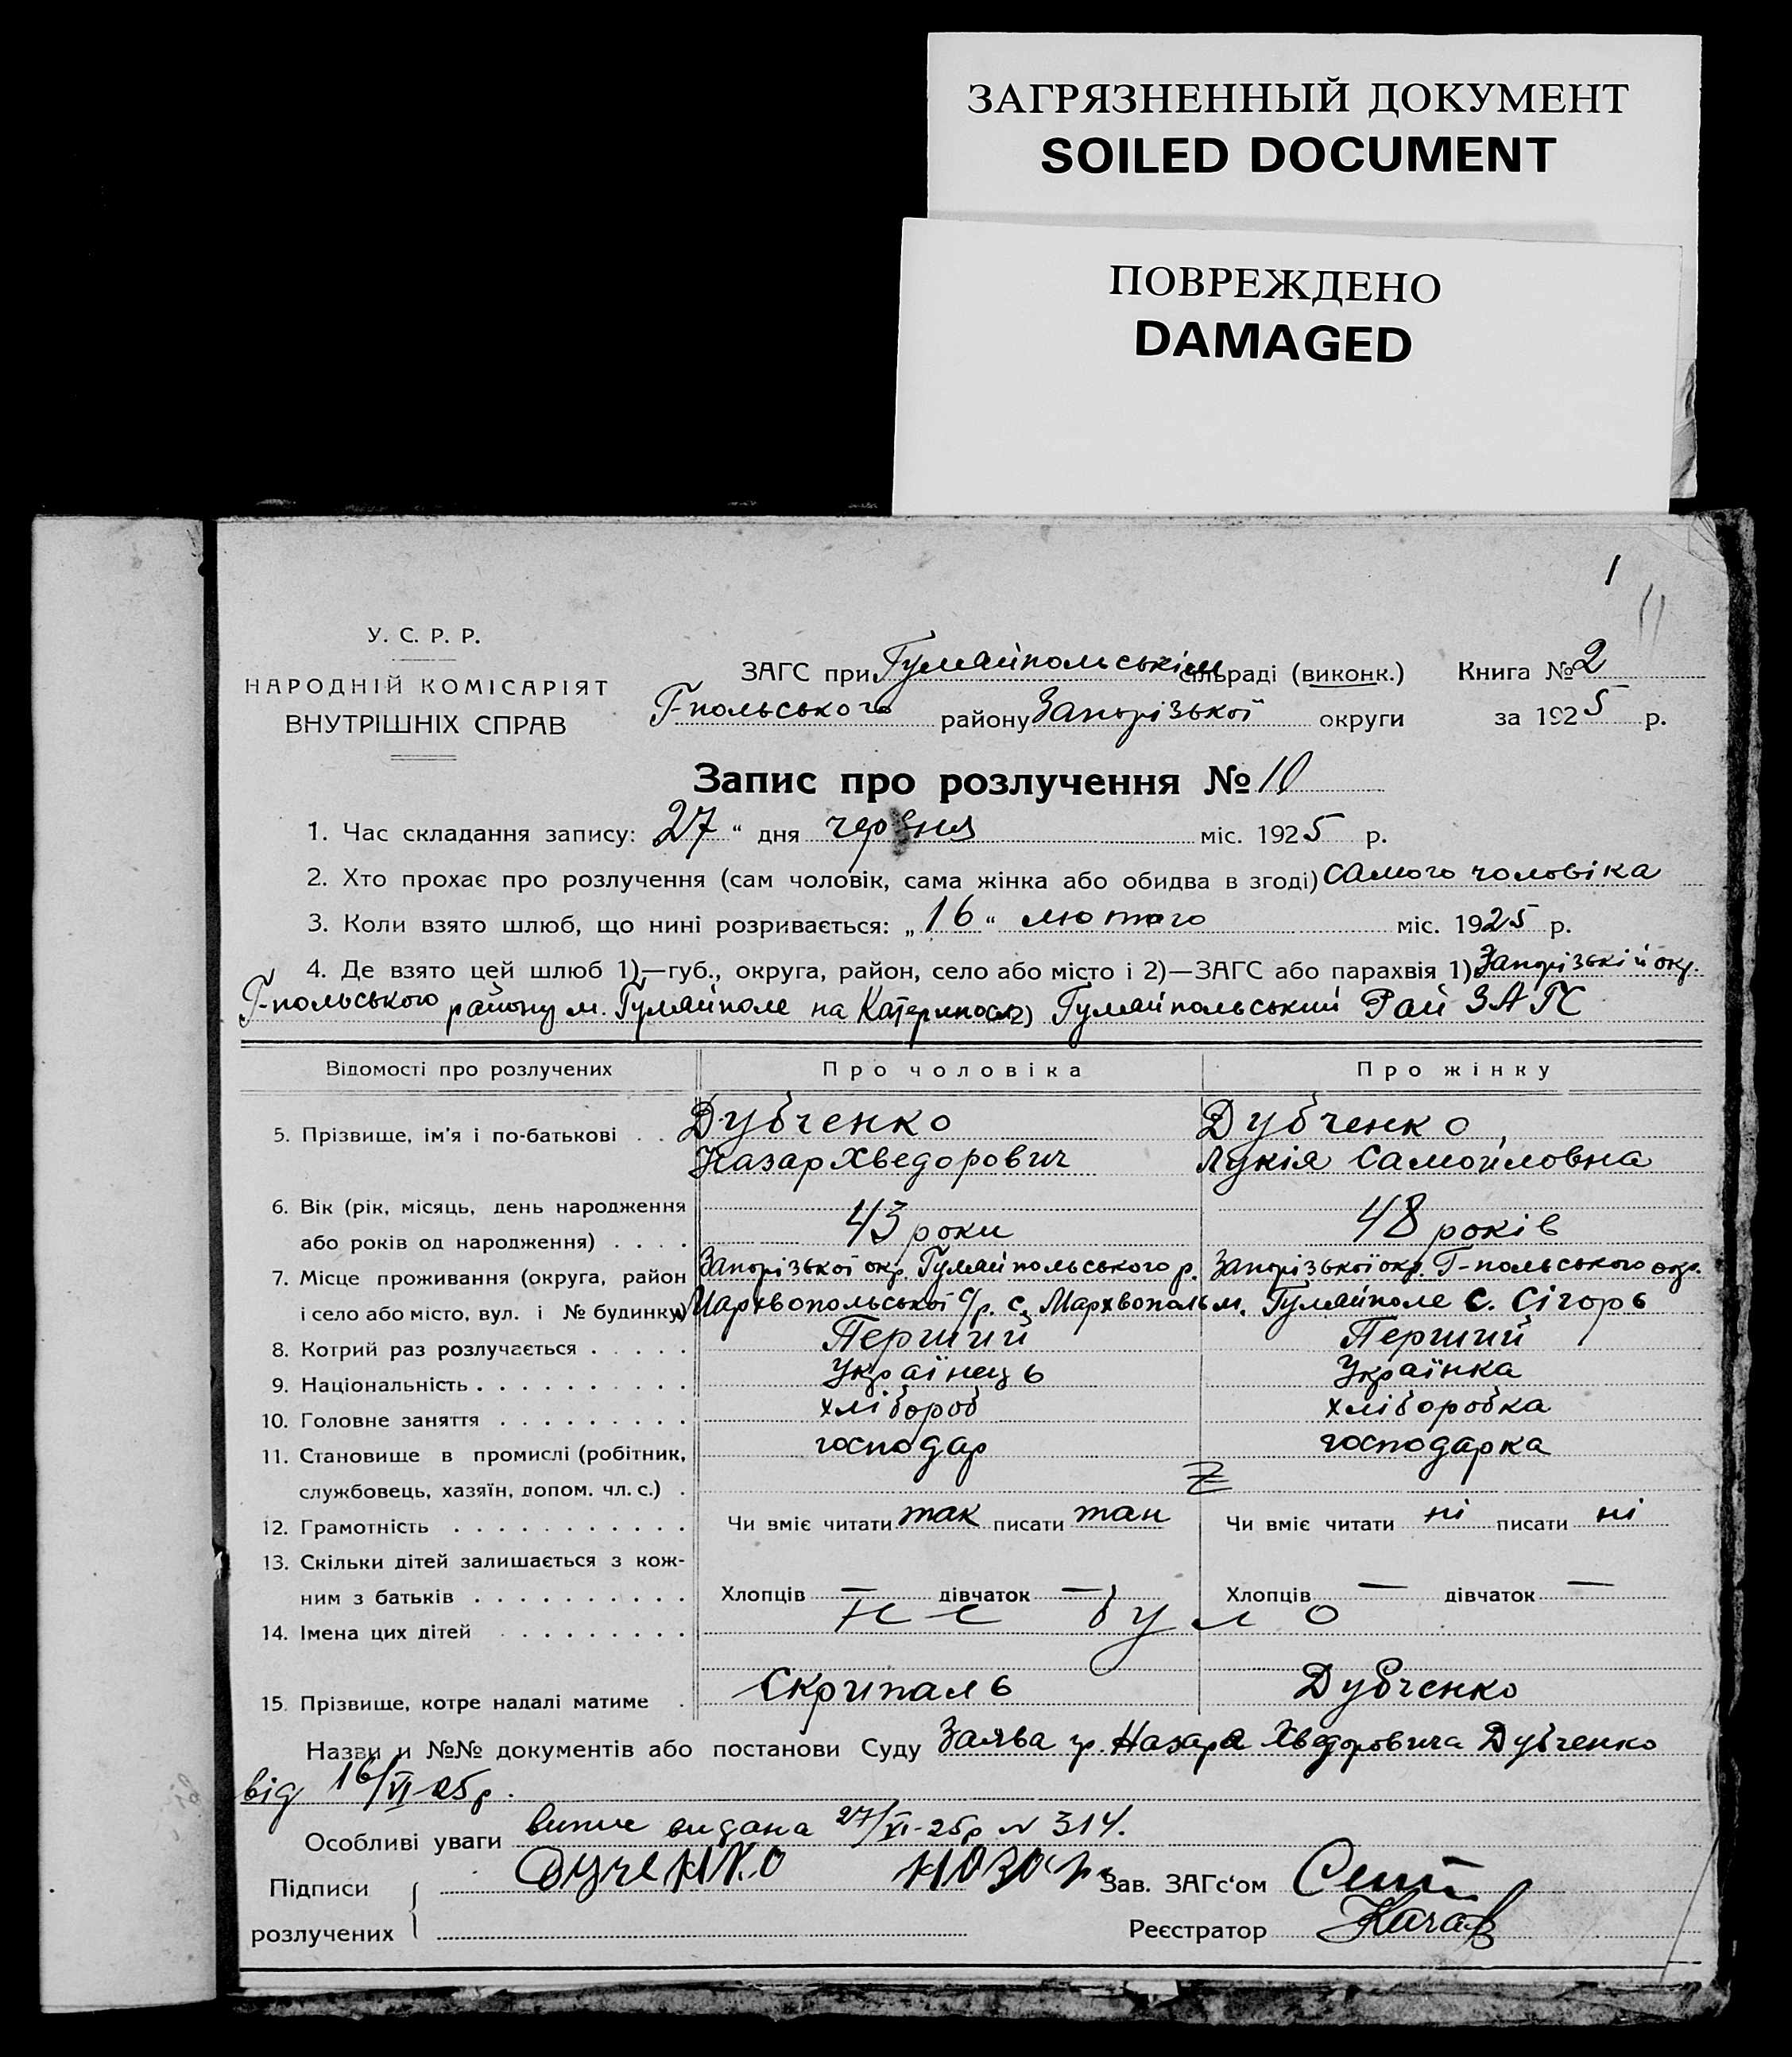 ЗАГРЯЗНЕННЫЙ ДОКУМЕНТ
SOILED DOCUMENT
ПОВРЕЖДЕНО
DAMAGED
1
У. С. Р. Р.
НАРОДНІЙ КОМІСАРІЯТ
ВНУТРІШНІХ СПРАВ
ЗАГС при Гуляйпольськім сільраді (виконк.) Книга № 2
Г-польського району Запорізької округи за 1925 р.
Запис про розлучення № 10
1. Час складання запису: 27 “ дня червня міс. 1925 р.
2. Хто прохає про розлучення (сам чоловік, сама жінка або обидва в згоді) самого чоловіка
3. Коли взято шлюб, що нині розривається: „ 16 “ лютого міс. 1925 р.
4. Де взято цей шлюб 1)—губ., округа, район, село або місто і 2)—ЗАГС або парахвія 1) Запорізькій окр.
Г-польського району м. Гуляйполе на Катериносл 2) Гуляйпольський Рай ЗАГС
Відомості про розлучених Про чоловіка Про жінку
5. Прізвище, ім'я і по-батькові . . Дубченко Дубченко,
Назар Хведорович Лукія Самойловна
6. Вік (рік, місяць, день народження
або років од народження) . . . . 43 роки 48 років
7. Місце проживання (округа, район Запорізької окр. Гуляйпольського р. Запорізької окр. Г-польського
і село або місто, вул. і № будинку) Мархвопольської с/р. с. Мархвополь м. Гуляйполе с.
8. Котрий раз розлучається . . . . . Перший Перший
9. Національність . . . . . . . . . . Українець Українка
10. Головне заняття . . . . . . . . . хлібороб хліборобка
11. Становище в промислі (робітник, господар господарка
службовець, хазяїн, допом. чл. с.) .
12. Грамотність . . . . . . . . . . . Чи вміє читати так писати так Чи вміє читати ні писати ні
13. Скільки дітей залишається з кож-
ним з батьків . . . . . . . . . . Хлопців — дівчаток — Хлопців — дівчаток —
14. Імена цих дітей . . . . . . . . . не було
15. Прізвище, котре надалі матиме . Скрипаль Дубченко
Назви и №№ документів або постанови Суду Заява гр. Назара Хведоровича Дубченко
від 16/VI-25р.
Особливі уваги видана 27/VI-25р N 314.
Підписи Зав. ЗАГс‘ом
розлучених Реєстратор